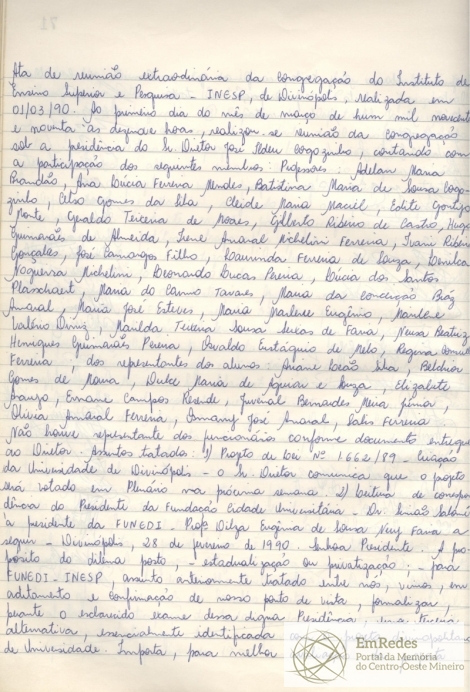 71
Ata de reunião extraordinária da Congregação do Instituto de
Ensino Superior e Pesquisa - INESP, de Divinópolis, realizada em
01/03/90. Ao primeiro dia do mês de março de hum mil novecentos
e noventa às dezenove horas, realizou-se reunião da congregação
sob a presidência do Sr. Diretor José Heleu Gogozinho, contando com
a participação dos seguintes membros: Professores: Adelan Maria
Brandão, Ana Lúcia Ferreira Mendes, Batistina Maria de Sousa Cogo-
zinho, Celso Gomes da Silva, Cleide Maria Maciel, Edite Gontijo
Monte, Geraldo Teixeira de Moraes, Gilberto Ribeiro de Castro, Hugo
Guimarães de Almeida, Irene Amaral Michelini Ferreira, Ivani Ribeiro
Gonçalves, José Camargos Filho, Laurinda Ferreira de Souza, Denilca
Nogueira Michelini, Leonardo Lucas Pereira, Lúcia dos Santos
Plasschaert, Maria do Carmo Tavares, Maria da Conceição Bráz
Amaral, Maria José Esteves, Maria Marlene Eugênio, Marilene
Valério Diniz, Marilda Teresa Sousa Lucas de Faria, Neusa Beatriz
Henriques Guimarães Pereira, Osvaldo Eustáquio de Melo, Regina
Ferreira, dos representantes dos alunos: Ariane Leão Silva, Belchior
Gomes de Moura, Dulce Maria de Aguiar e Souza, Elizabete
Araujo, Ername Campos Resende, Juvenal Bernardes Meira Júnior,
Olívia Amaral Ferreira, Osmany José Amaral, Ferreira.
Não houve representante dos funcionários conforme documento entregue
ao Diretor. Assuntos tratados: 1) Projeto de Lei Nº 1.662/89. Criação
da Universidade de Divinópolis - O Sr. Diretor comunica que o projeto
será votado em Plenário na próxima semana. 2) Leitura de correspon-
dência do Presidente da Fundação Cidade Universitária - Dr. Simão Salomé
à presidente da FUNEDI - Profª Dilza Eugênia de Sousa Nery Faria a
seguir - Divinópolis, 28 de fevereiro de 1990. Senhora Presidente. A pro-
pósito do dilema posto, - estadualização ou privatização; - para
FUNEDI-INESP, assunto anteriormente tratado entre nós, vimos, em
aditamento e confirmação de nosso ponto de vista, formalizar,
perante o esclarecido exame dessa digna Presidência,
alternativa, essencialmente identificada
de Universidade. Importa, para melhor
EmRedes
Portal da Memória
do Centro-Oeste Mineiro